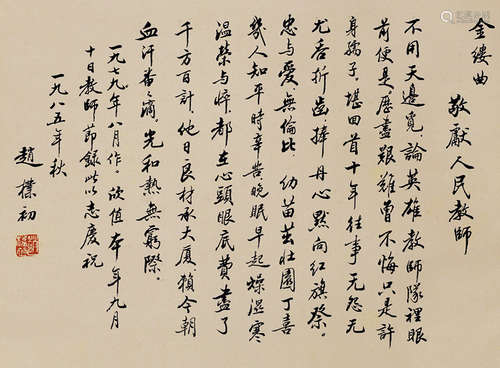 金缕曲
敬獻人民教師
不用天邊覓，論英雄教師隊裡眼
前便是。歷盡艱難曾不悔，只是許
身孺子。堪回首十年往事，无怨无
尤吞折齒，捧丹心默向红旗祭。
忠与愛，無倫比 幼苗茁壮園丁喜
幾人知平時辛苦，晚眠早起燥湿寒
温榮与悴都在心頭眼底。費盡了
千方百計。他日良材承大厦，賴今朝
血汗番番滴。光和熱，無窮際。
一九七九年八月作。欣值本年九月
十日教師節録此以志慶祝
一九八五年秋
趙樸初